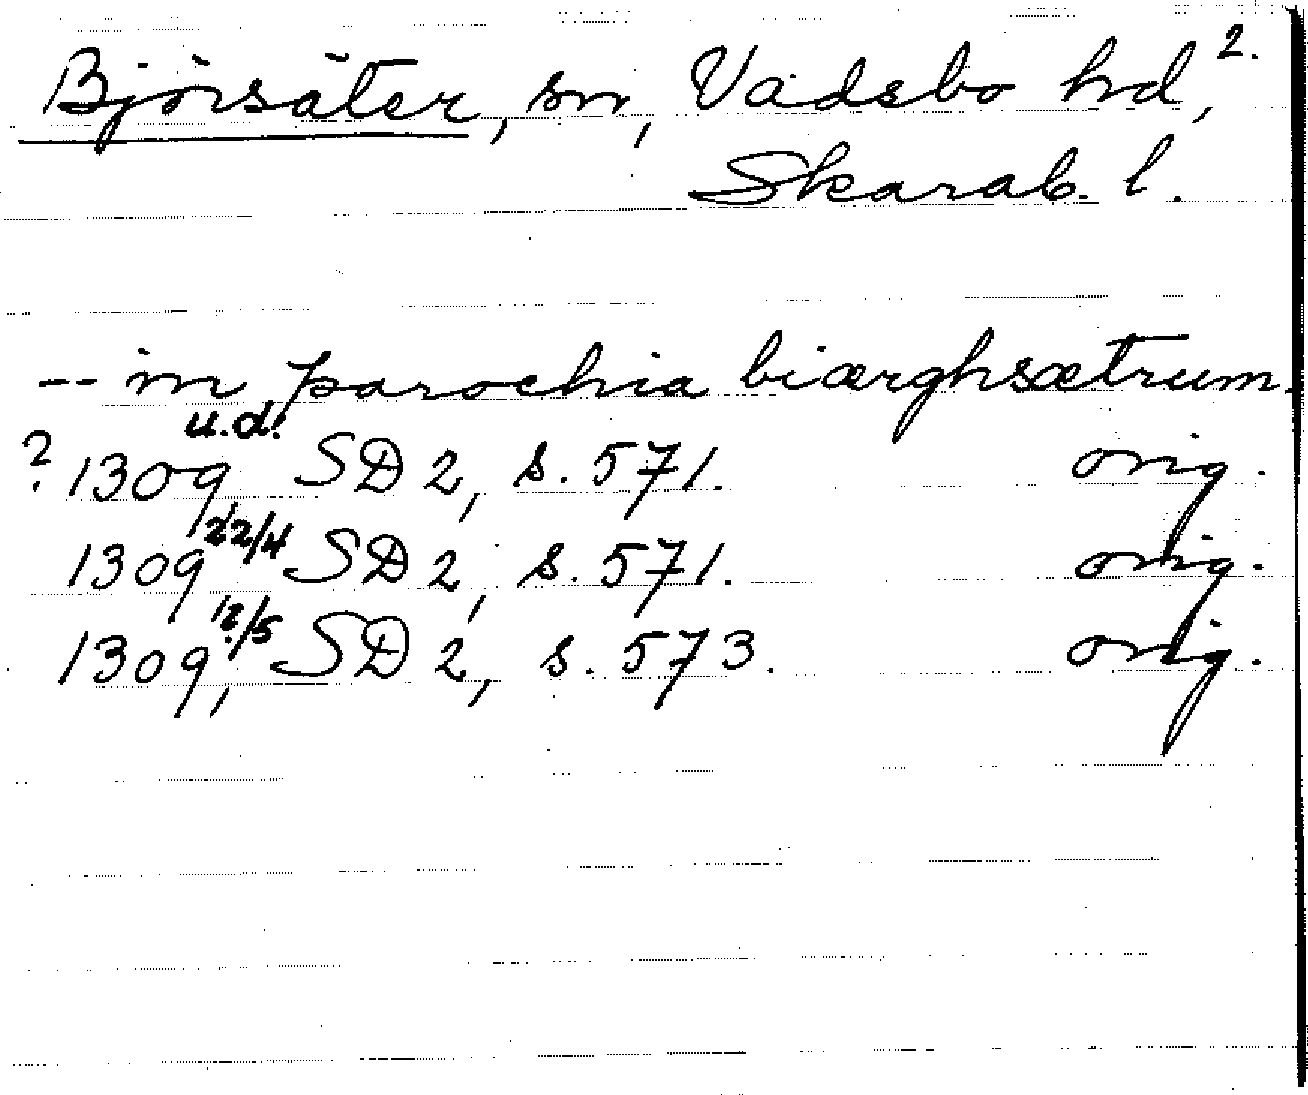 Björsäter, sn, Vadsbo hd, 2.
Skarab. l.
-- in parochia biærghsætrum.
u.d.
? 1309 SD 2, s. 571. orig.
1309 22/4 SD 2, s. 571. orig.
1309, 12/5 SD 2, s. 573. orig.